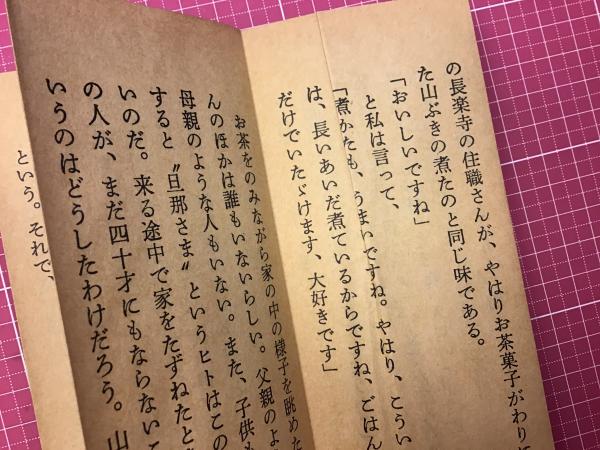 の長楽寺の住職さんが、やはりお茶菓子がわりに
た山ぶきの煮たのと同じ味である。
「おいしいですね」
と私は言って、
「煮かたも、うまいですね。やはり、こうい
は、長いあいだ煮ているからですね、ごはん
だけでいたゞけます、大好きです」
お茶をのみながら家の中の様子を眺めた
んのほかは誰もいないらしい。父親のよ
母親のような人もいない。また、子供も
すると〝旦那さま〟というヒトはこの
いのだ。来る途中で家をたずねたと
の人が、まだ四十才にもならないこ
いうのはどうしたわけだろう。山
という。それで、